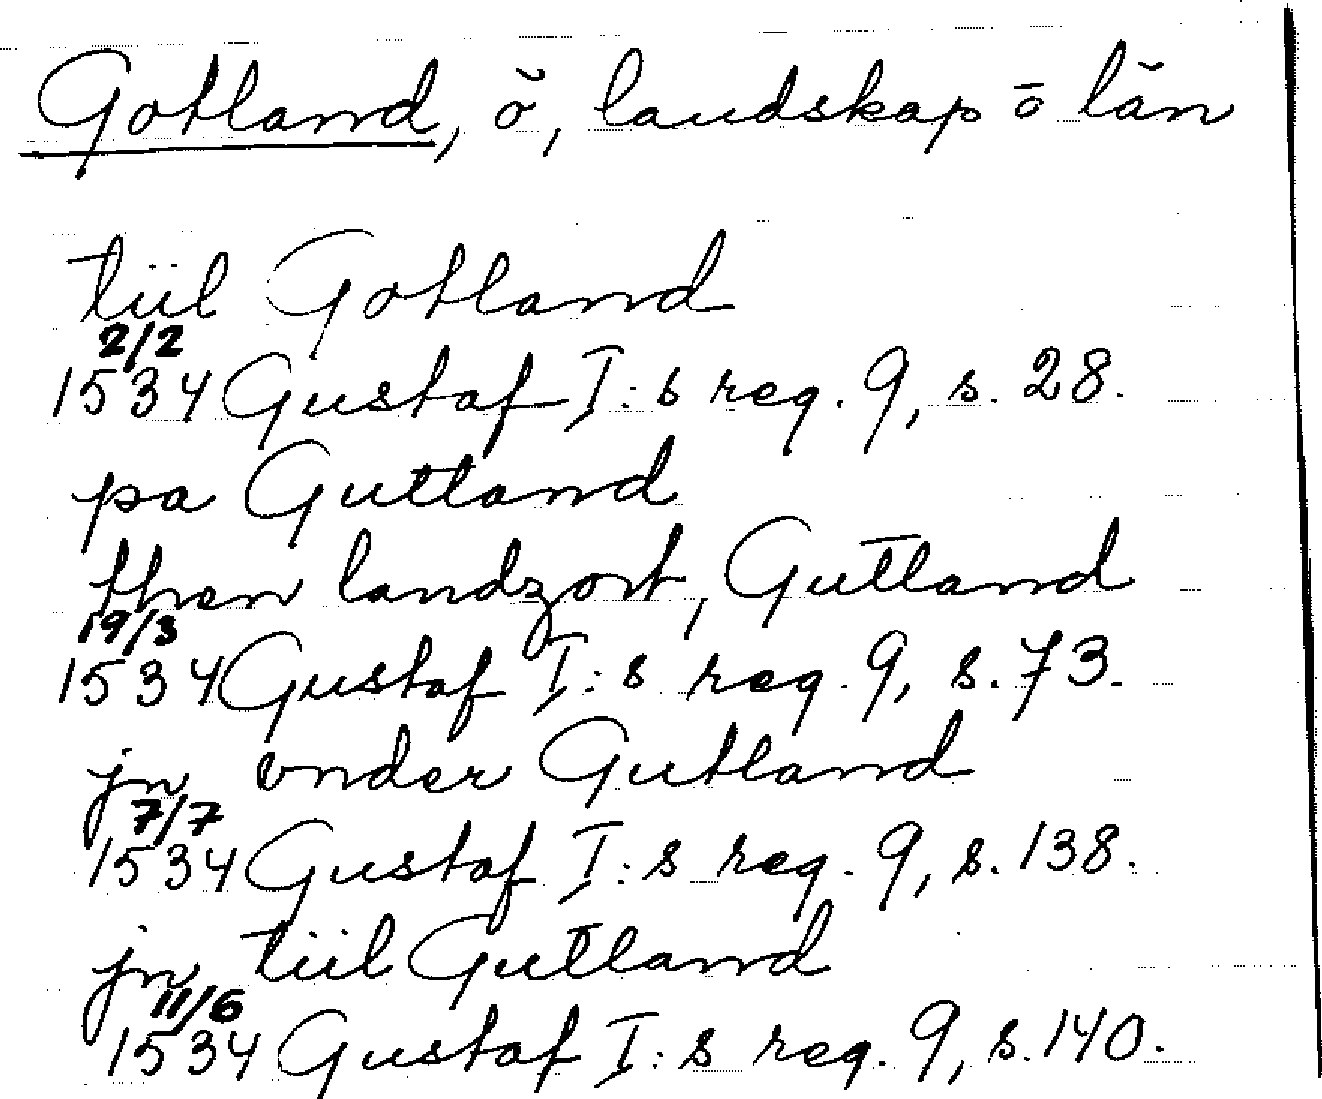 Gotland, ö, landskap o län
tiil Gotland
2/2
1534 Gustaf I:s reg. 9, s. 28.
pa Gutland
then landzort, Gutland
19/3
1534 Gustaf I:s reg. 9, s. 73.
jn vnder Gutland
7/7
1534 Gustaf I:s reg. 9, s. 138.
jn tiil Gutland
11/6
1534 Gustaf I:s reg. 9, s. 140.